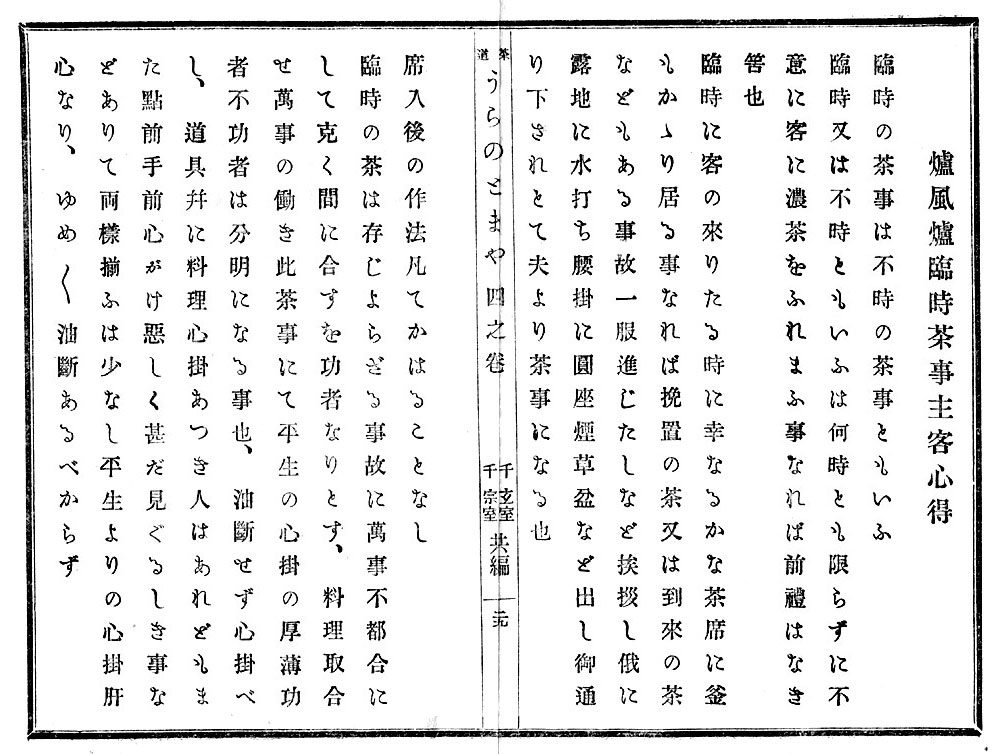 爐風爐臨時茶事主客心得
臨時の茶事は不時の茶事ともいふ
臨時又は不時ともいふは何時とも限らずに不
意に客に濃茶をふれまふ事なれば前禮はなき
筈也
臨時に客の來りたる時に幸なるかな茶席に釜
もかゝり居る事なれば挽置の茶又は到來の茶
などもある事故一服進じたしなど挨拶し俄に
露地に水打ち腰掛に圓座煙草盆など出し御通
り下されとて夫より茶事になる也
茶道 うらのとまや 四之卷 千玄室 千宗室 共編 二元
席入後の作法凡てかはることなし
臨時の茶は存じよらざる事故に萬事不都合に
して克く間に合すを功者なりとす、料理取合
せ萬事の働き此茶事にて平生の心掛の厚薄功
者不功者は分明になる事也、油斷せず心掛べ
し、道具幷に料理心掛あつき人はあれどもま
た點前手前心がけ惡しく甚だ見ぐるしき事な
どありて両樣揃ふは少なし平生よりの心掛肝
心なり、ゆめ〱油斷あるべからず